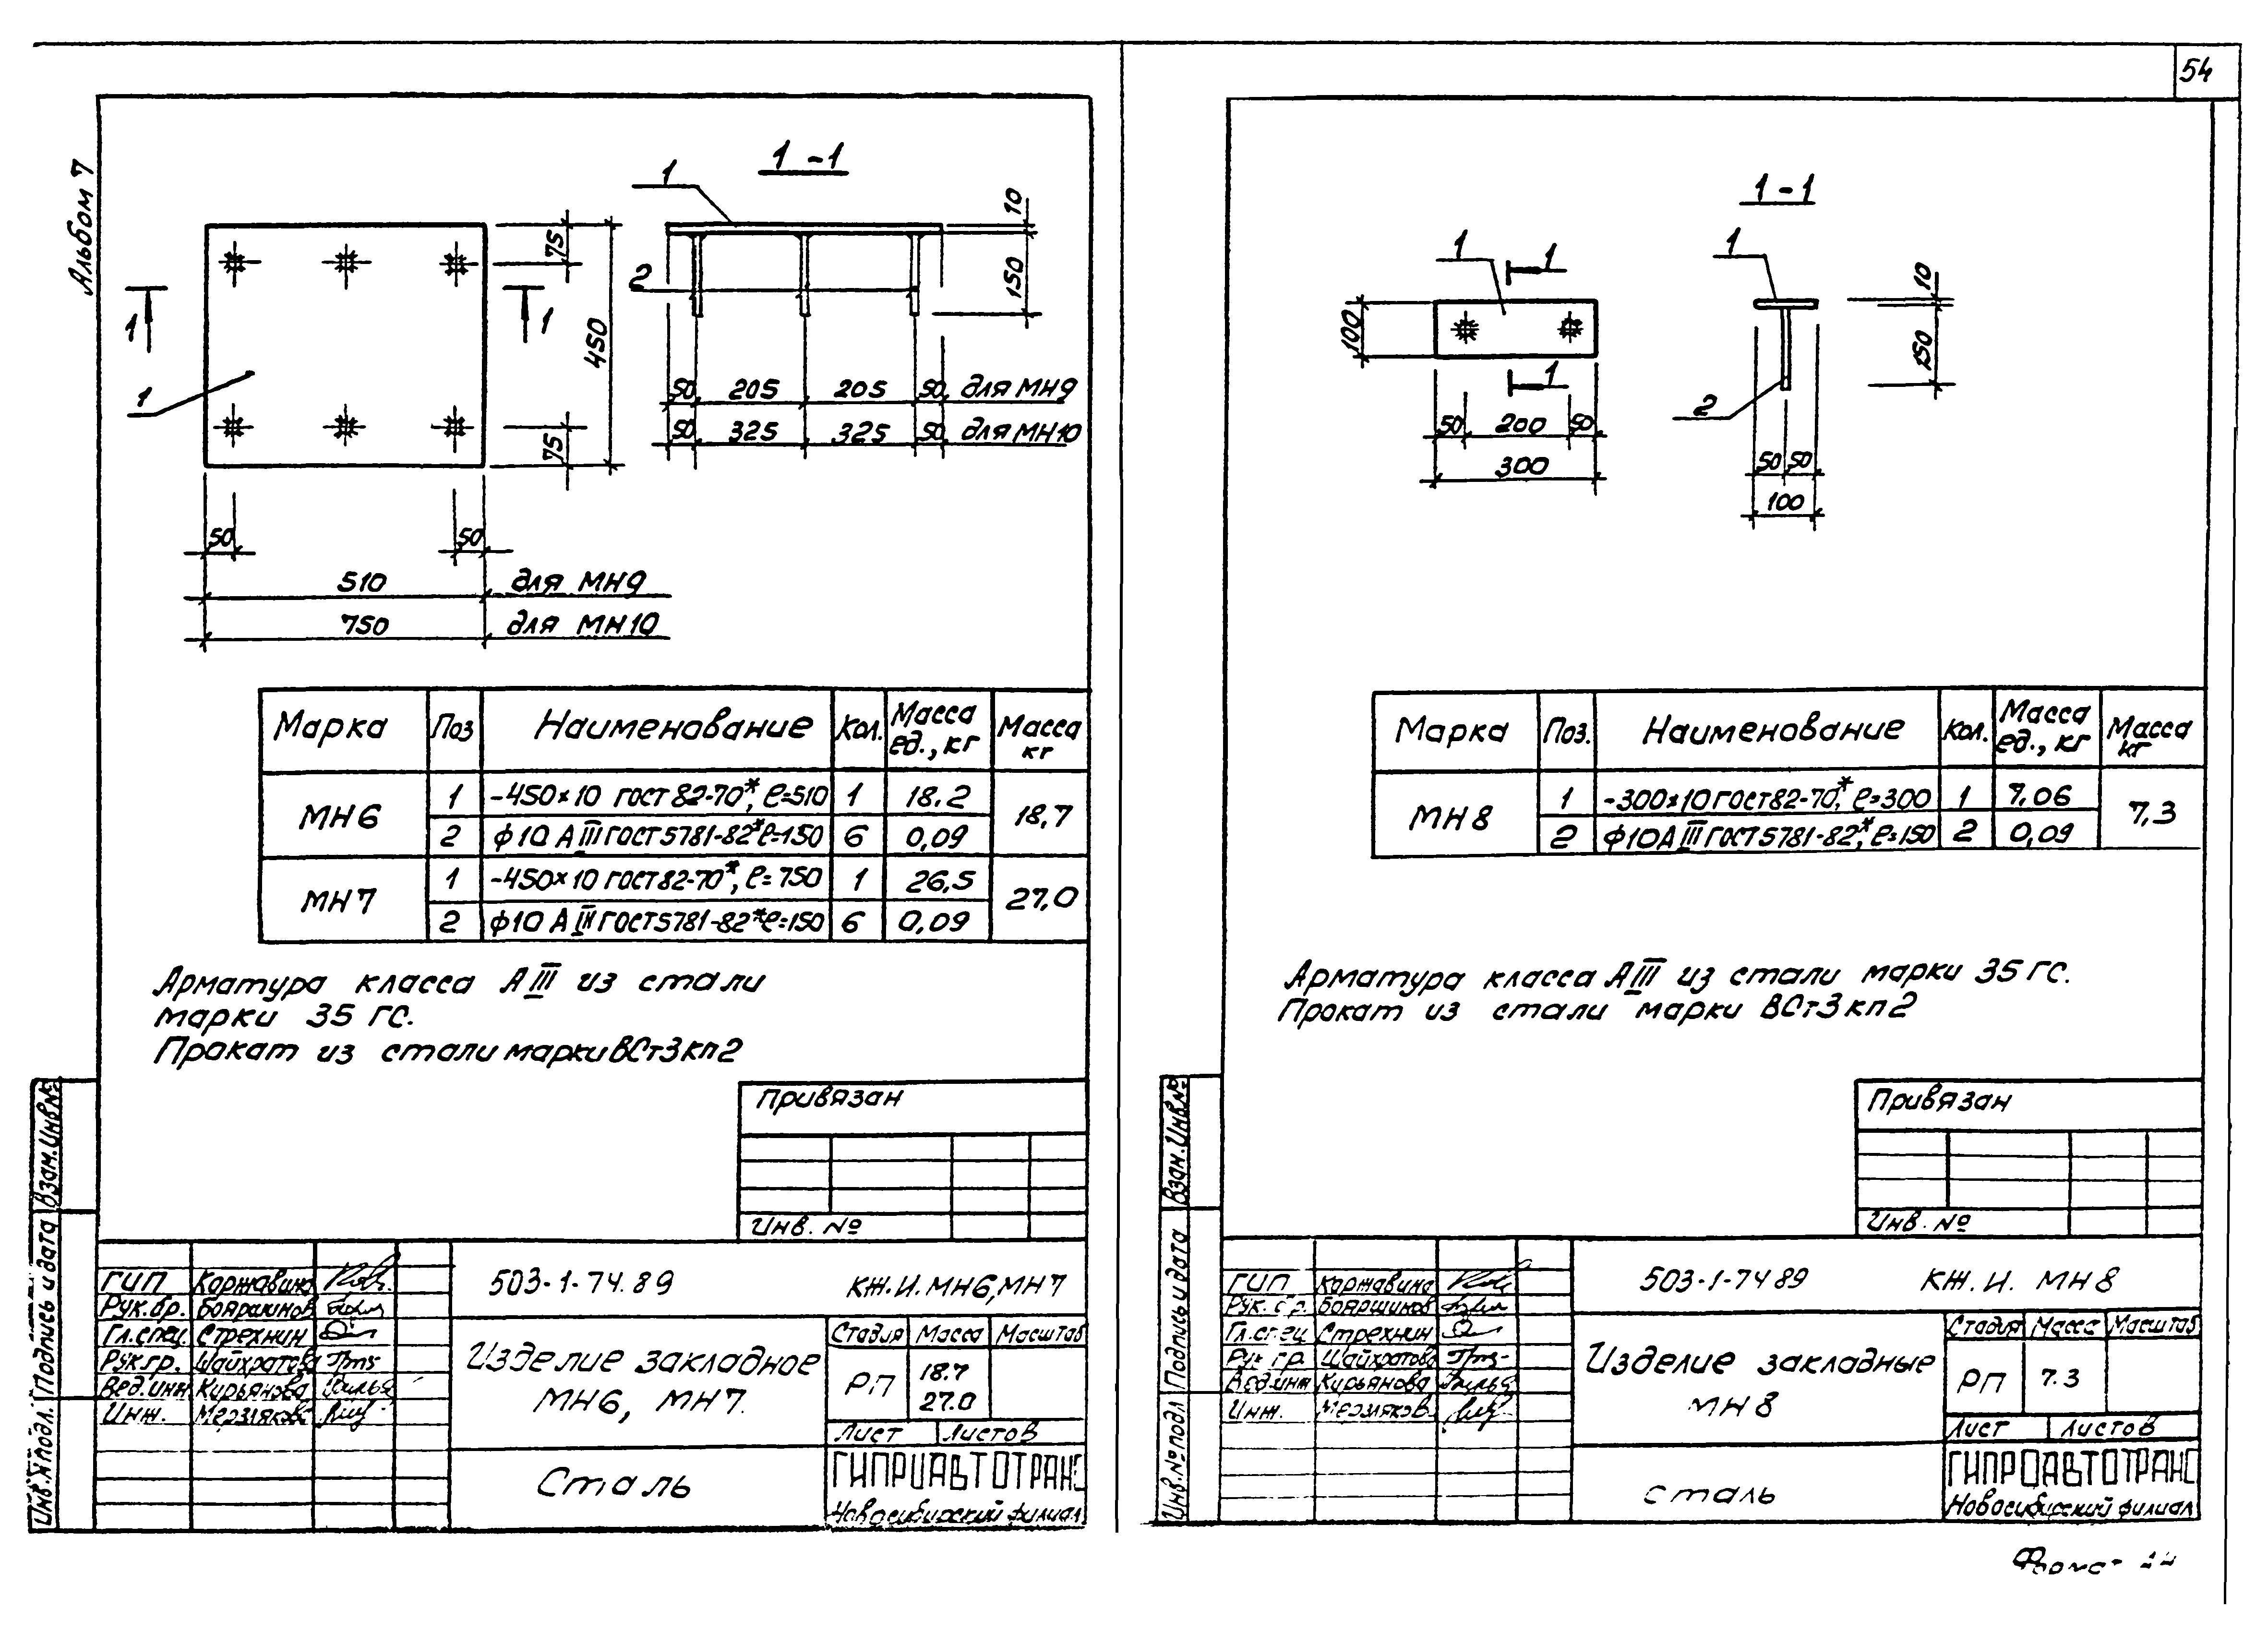 54
Альбом 7
1-1
1
10
150
2
75
450
75
1
1
1
50 205 205 50 для МН9
50 325 325 50 для МН10
50
50
510 для МН9
750 для МН10
Марка Поз Наименование Кол. Масса ед., кг Масса кг
МН6 1 -450×10 ГОСТ 82-70*, ℓ=510 1 18.2 18,7
2 ϕ10 АIII ГОСТ5781-82* ℓ=150 6 0,09
МН7 1 -450×10 ГОСТ82-70*, ℓ=750 1 26,5 27,0
2 ϕ10 АIII ГОСТ5781-82* ℓ=150 6 0,09
Арматура класса АIII из стали
марки 35 ГС.
Прокат из стали марки ВСт3кп2
Привязан
Инв. №
Взам.Инв№
Подпись и дата
Инв.№подл.
ГИП Коржавина
Рук.бр. Бояршинов
Гл.спец. Стрехнин
Рук.гр. Шайхратова
Вед.инж Кирьянова
Инж. Мерзляков
503-1-74.89 КЖ.И.МН6,МН7
Изделие закладное
МН6, МН7.
Стадия Масса Масштаб
РП 18.7
27.0
Лист Листов
Сталь
ГИПРОАВТОТРАНС
Новосибирский филиал
1-1
1
1
1
100
1
50 200 50
300
10
150
2
50 50
100
Марка Поз. Наименование Кол. Масса ед., кг Масса кг
МН8 1 -300×10 ГОСТ82-70*, ℓ=300 1 7,06 7,3
2 ϕ10АIII ГОСТ5781-82*, ℓ=150 2 0,09
Арматура класса АIII из стали марки 35 ГС.
Прокат из стали марки ВСт3кп2
Привязан
Инв. №
Взам.Инв№
Подпись и дата
Инв.№подл
ГИП Коржавина
Рук. гр. Бояршинов
Гл.спец Стрехнин
Рук гр. Шайхратова
Вед.инж Кирьянова
Инж. Мерзляков
503-1-74 89 КЖ.И. МН8
Изделие закладные
МН8
Стадия Масса Масштаб
РП 7.3
Лист Листов
сталь
ГИПРОАВТОТРАНС
Новосибирский филиал